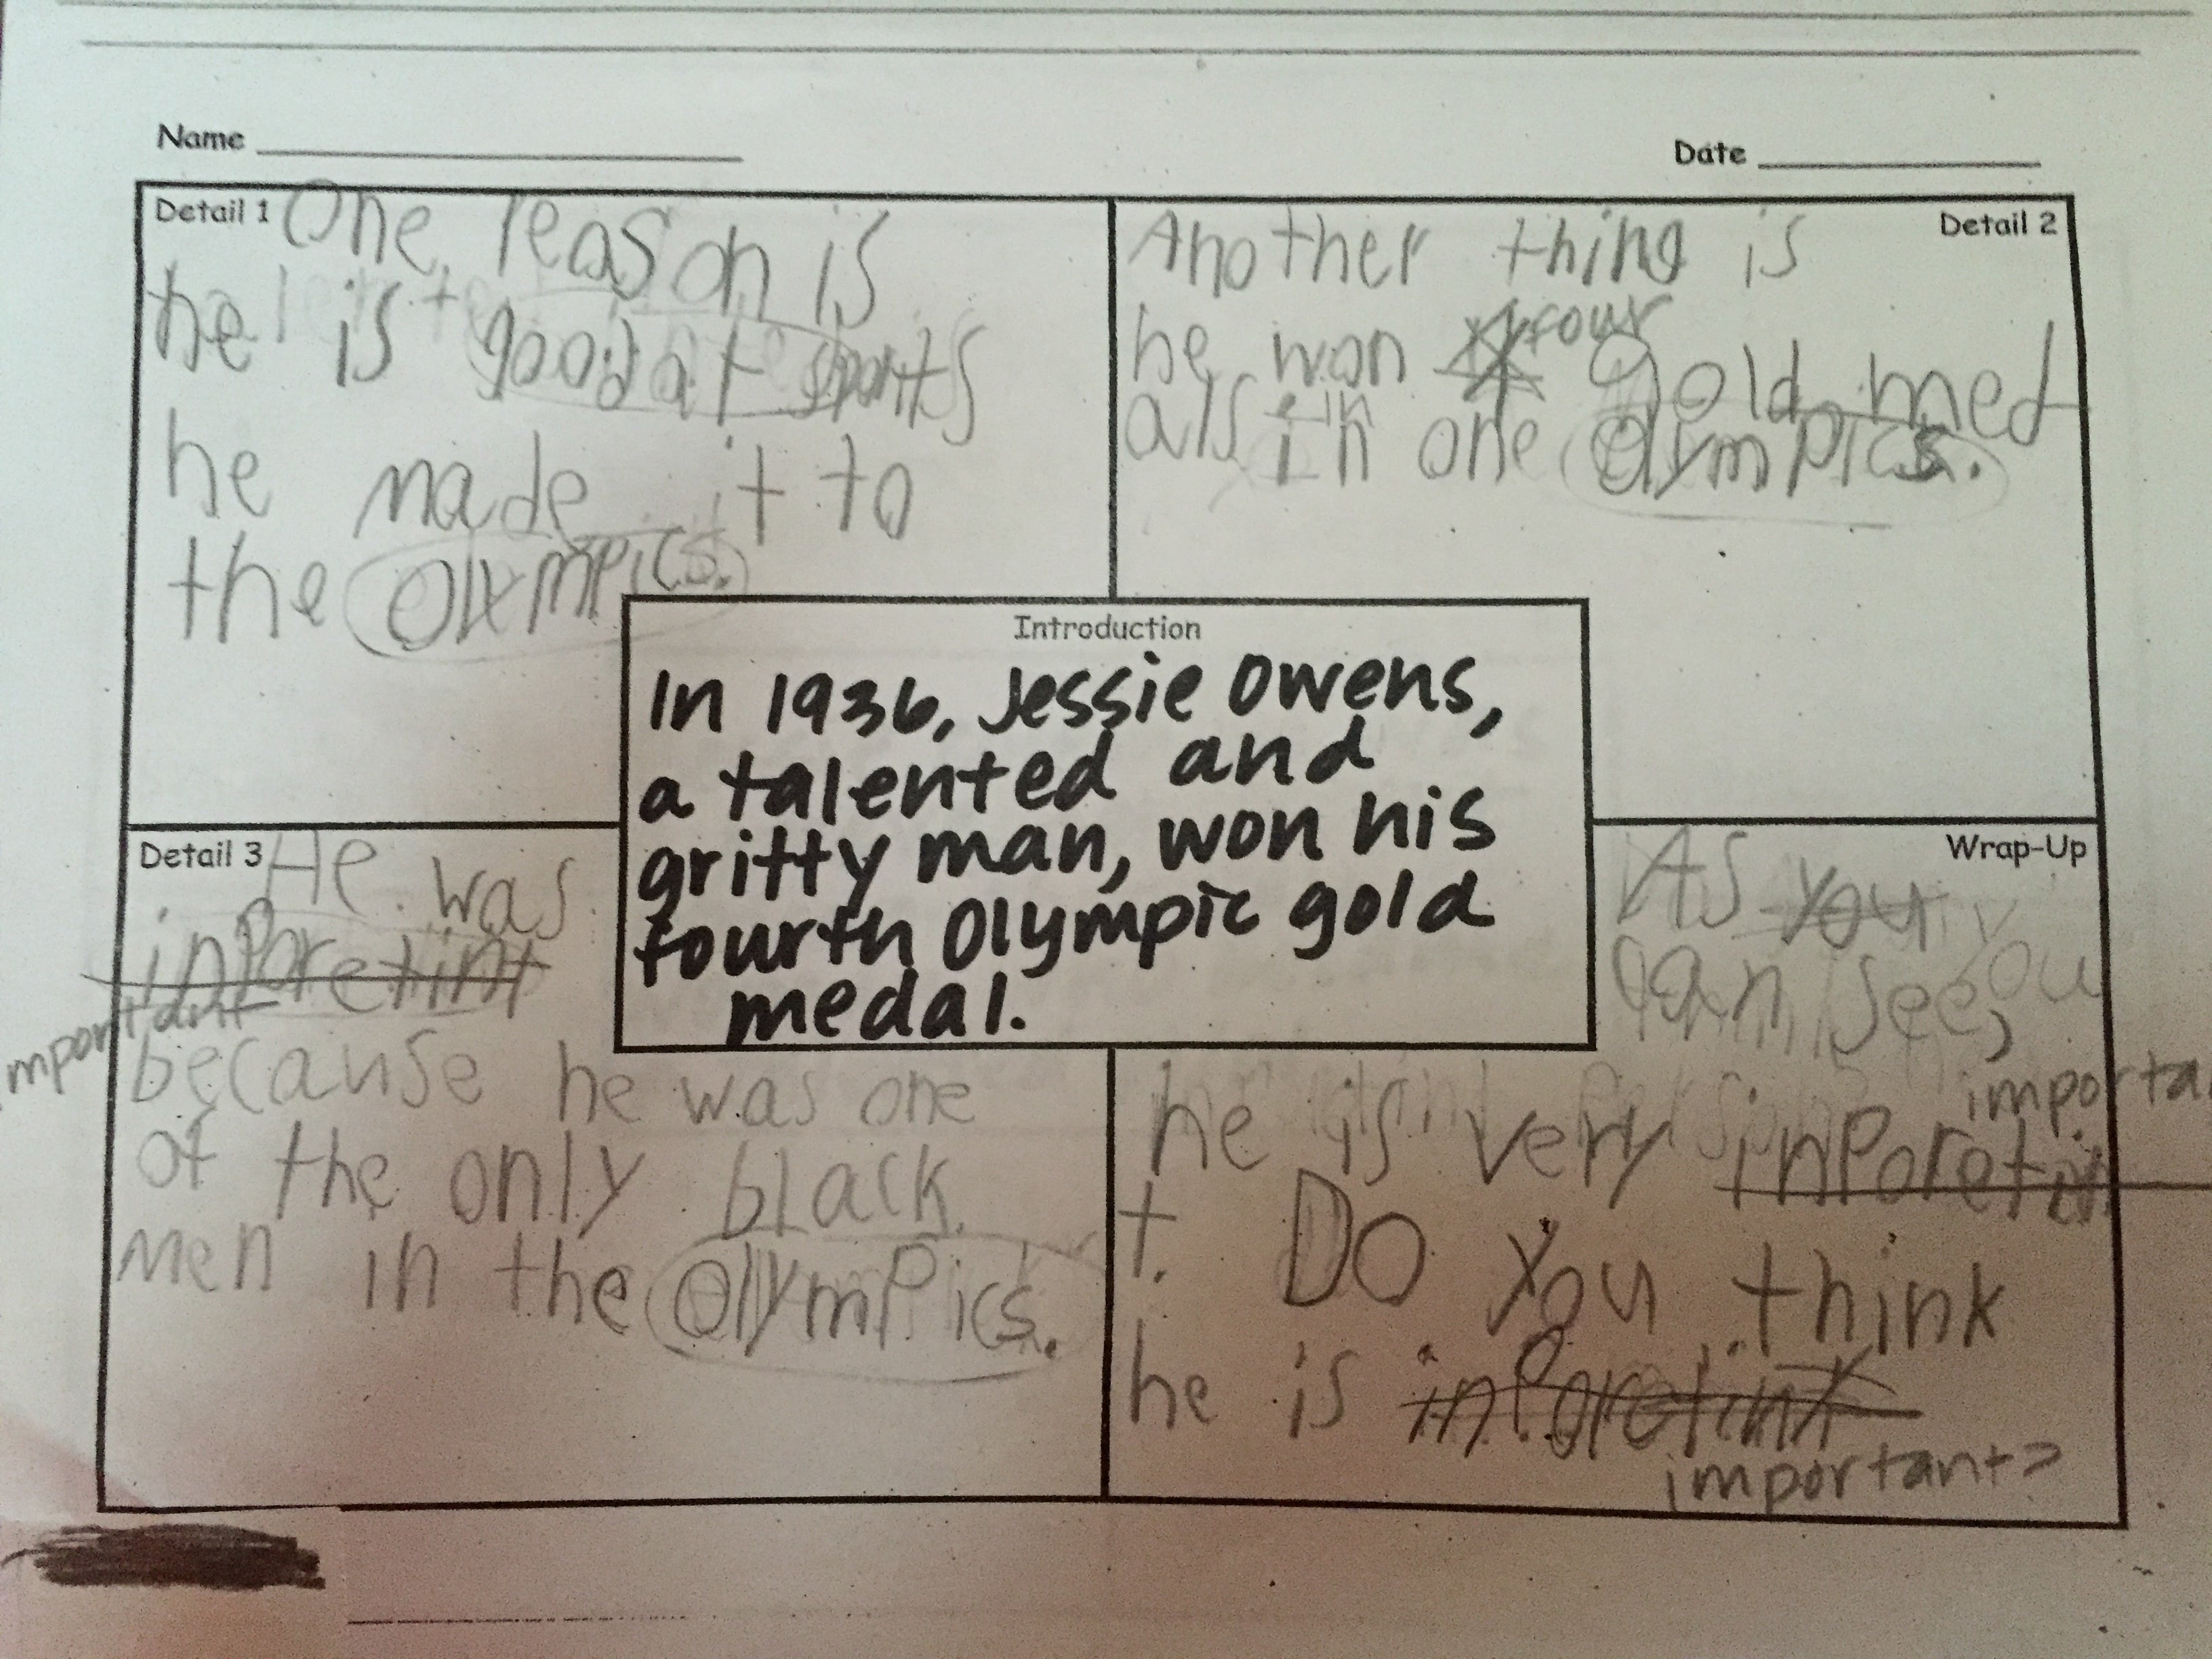 Name
Date
Detail 1
One reason is
he is good at sports
he made it to
the Olympics.
Detail 2
Another thing is
he won 4 four gold med
als in one Olympics.
Introduction
In 1936, Jessie Owens,
a talented and
gritty man, won his
fourth Olympic gold
medal.
Detail 3
He was
inPoretint
important
because he was one
of the only black
men in the Olympics.
Wrap-Up
As you
can see, you
importa
he is very inPoretin
t. Do you think
he is inPoretint
important?